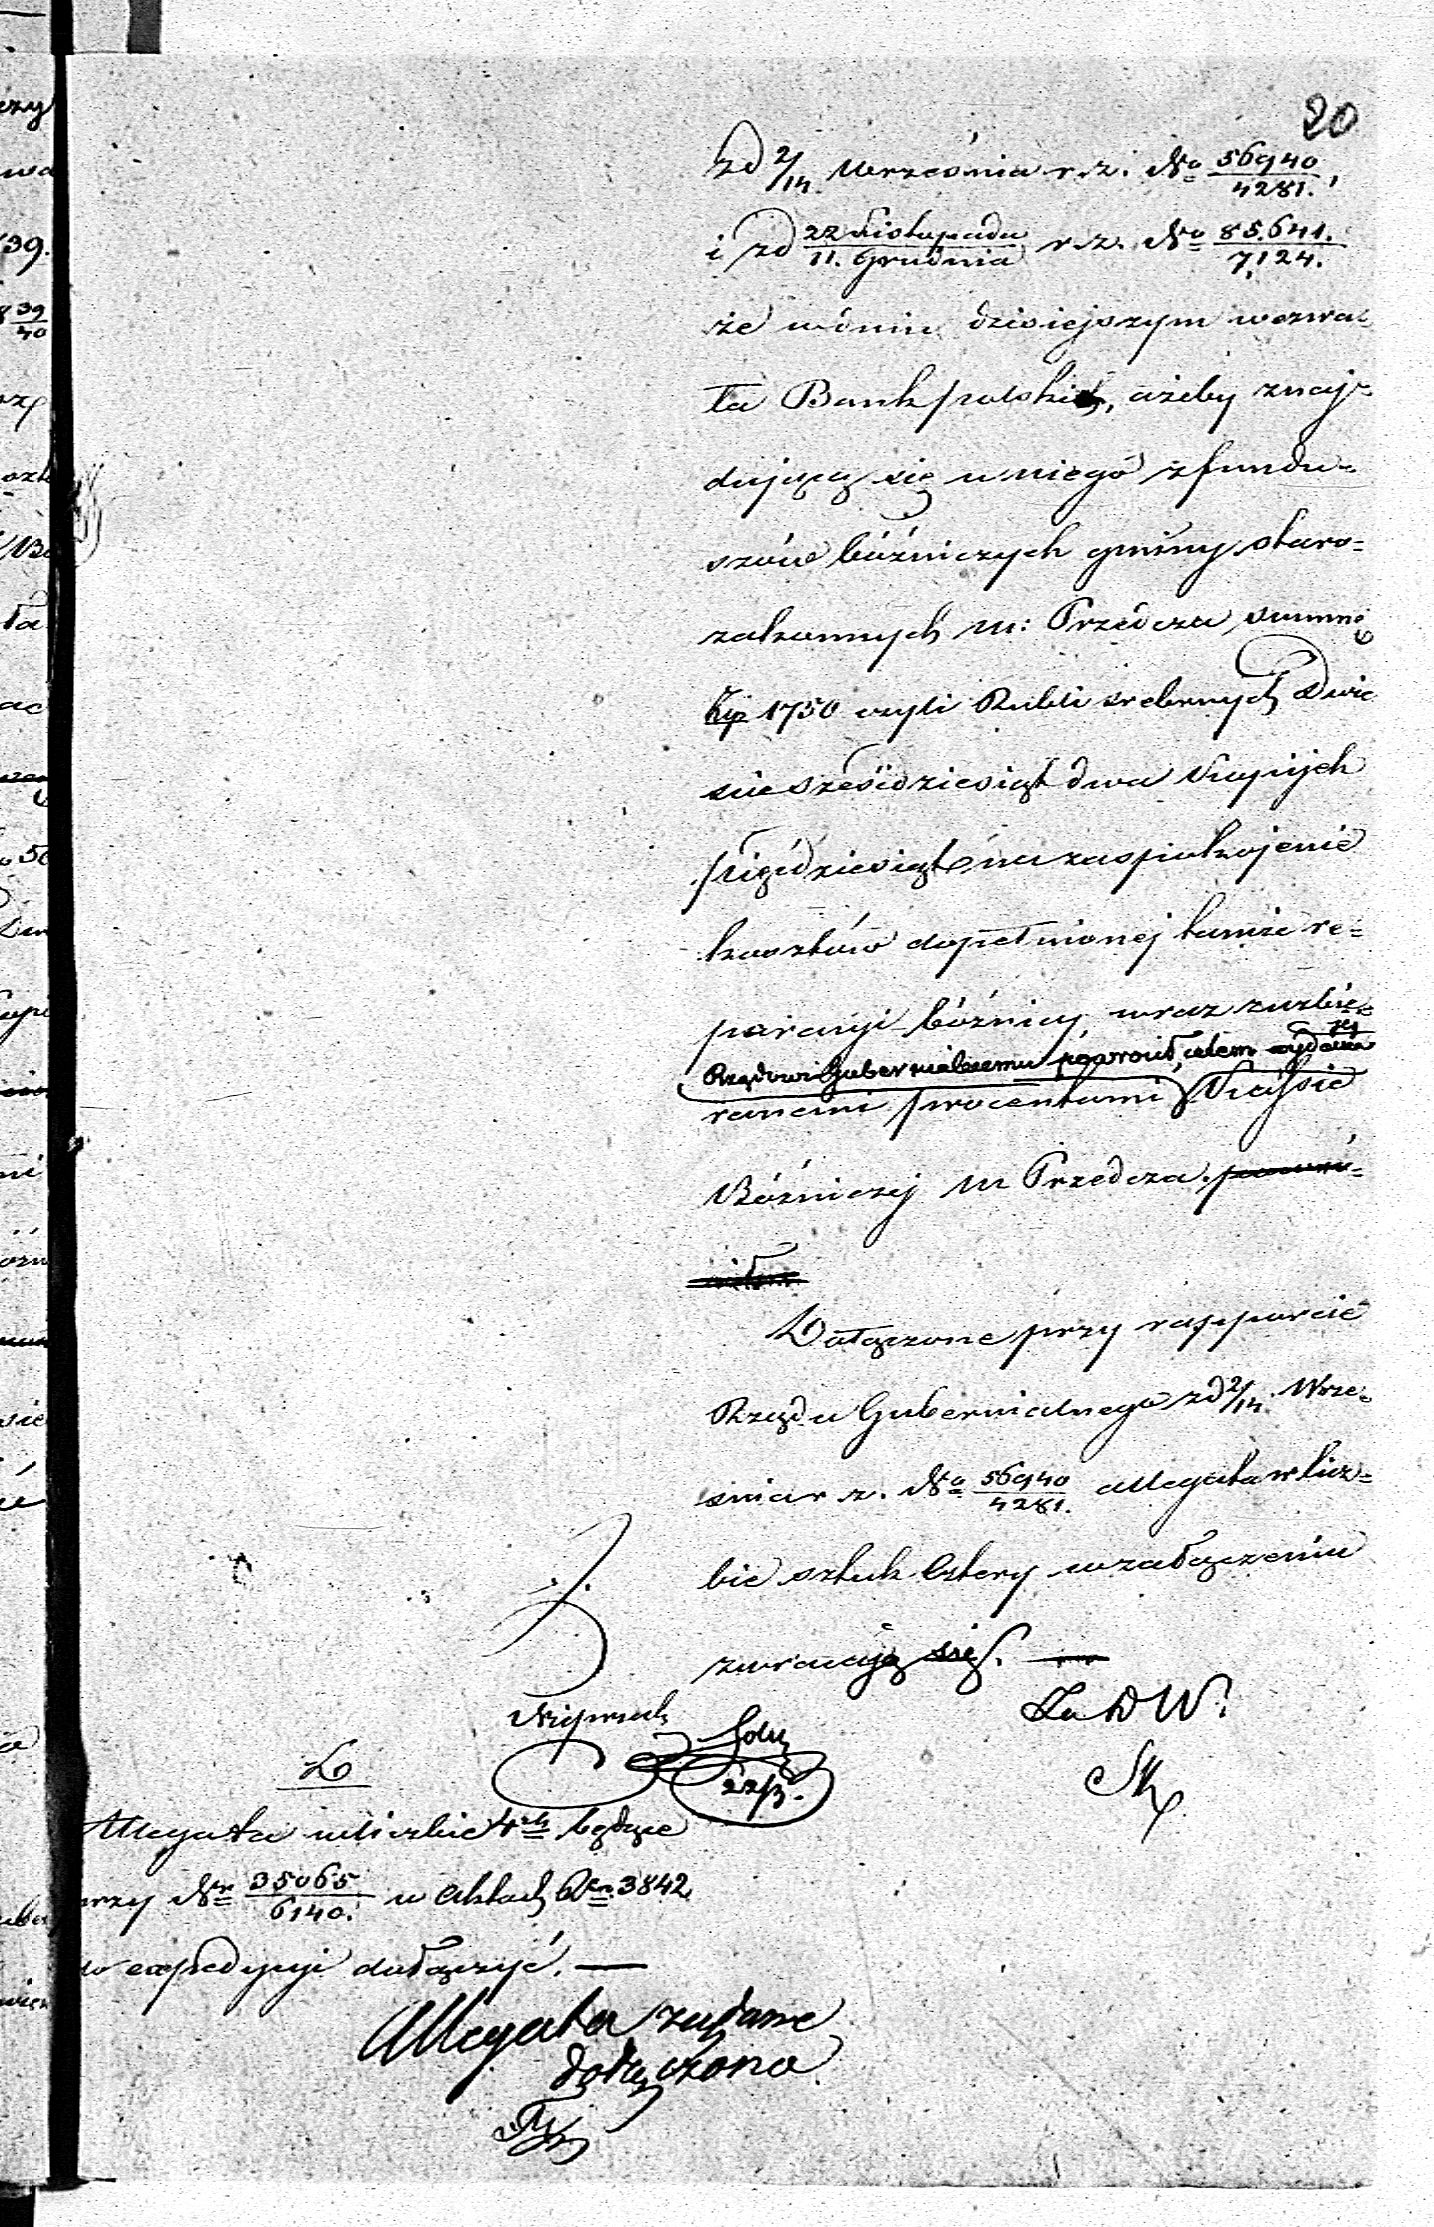 20
zd 2/14 Września r. z. No 56940/4281.,
i zd 22 Listopada/11. Grudnia r. z. No 85.641./7,124.
że w dniu dzisiejszym wezwa-
ła Bank polski, ażeby znaj-
dującą się u niego z fundu-
szów bóźniczych gminy staro-
zakonnych m: Przedcza summę
Złp 1750 czyli Rubli srebrnych Dwie
ście sześćdziesiąt dwa Kopijek
pięćdziesiąt na zaspokojenie
kosztów dopełnionej tamże re-
paracyi bóźnicy, wraz z uzbie-
Rządowi Gubernialnemu powrócił, celem wydania jej
ranemi procentami Kassie
Bóźniczej m Przedcza. powró-
Dołączone przy rapporcie
Rządu Gubernialnego zd 2/14. Wrze-
śnia r. z. No 56940/4281. allegata w licz-
bie sztuk Cztery w załączeniu
zwracają się.
Za D W.
22/3.
Allegata w liczbie 4ch będące
przy Nr 35065/6140. w Aktach No 3842
do expedycyi dołączyć.
Allegata żądane
dołączono